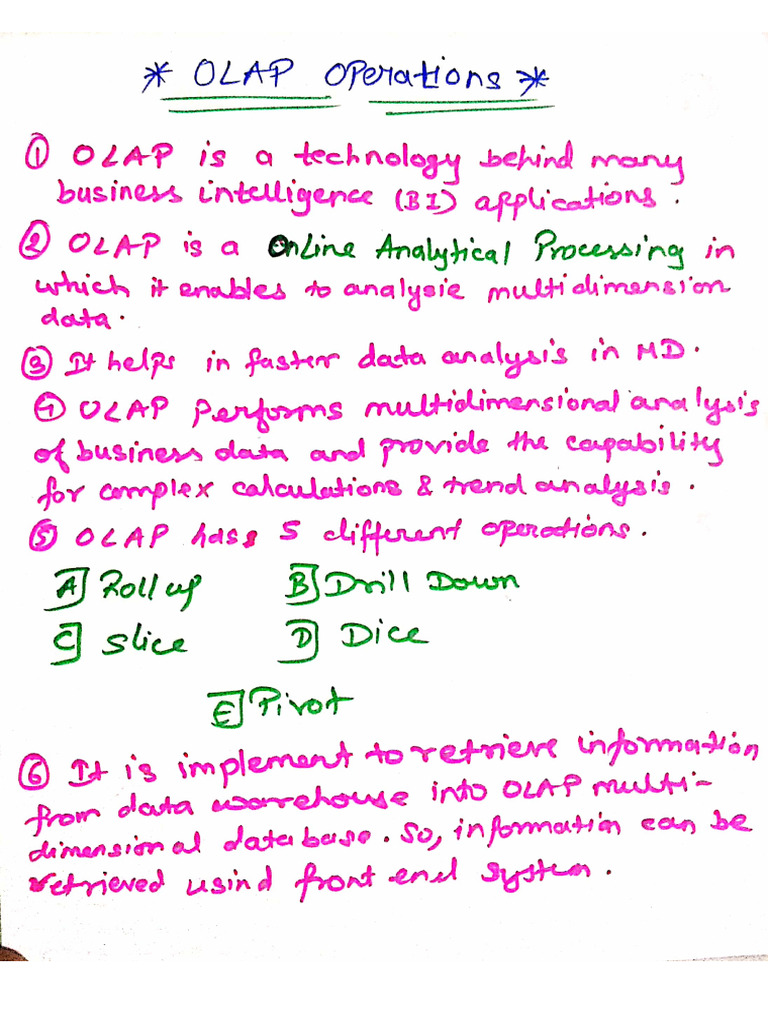 * OLAP Operations *
① OLAP is a technology behind many
business intelligence (BI) applications.
② OLAP is a Online Analytical Processing in
which it enables to analysie multidimension
data.
③ It helps in faster data analysis in MD.
④ OLAP performs multidimensional analysis
of business data and provide the capability
for complex calculations & trend analysis.
⑤ OLAP hass 5 different operations.
A] Roll up B] Drill Down
C] Slice D] Dice
E] Pivot
⑥ It is implement to retrieve information
from data warehouse into OLAP multi-
dimensional database. So, information can be
retrieved usind front end system.